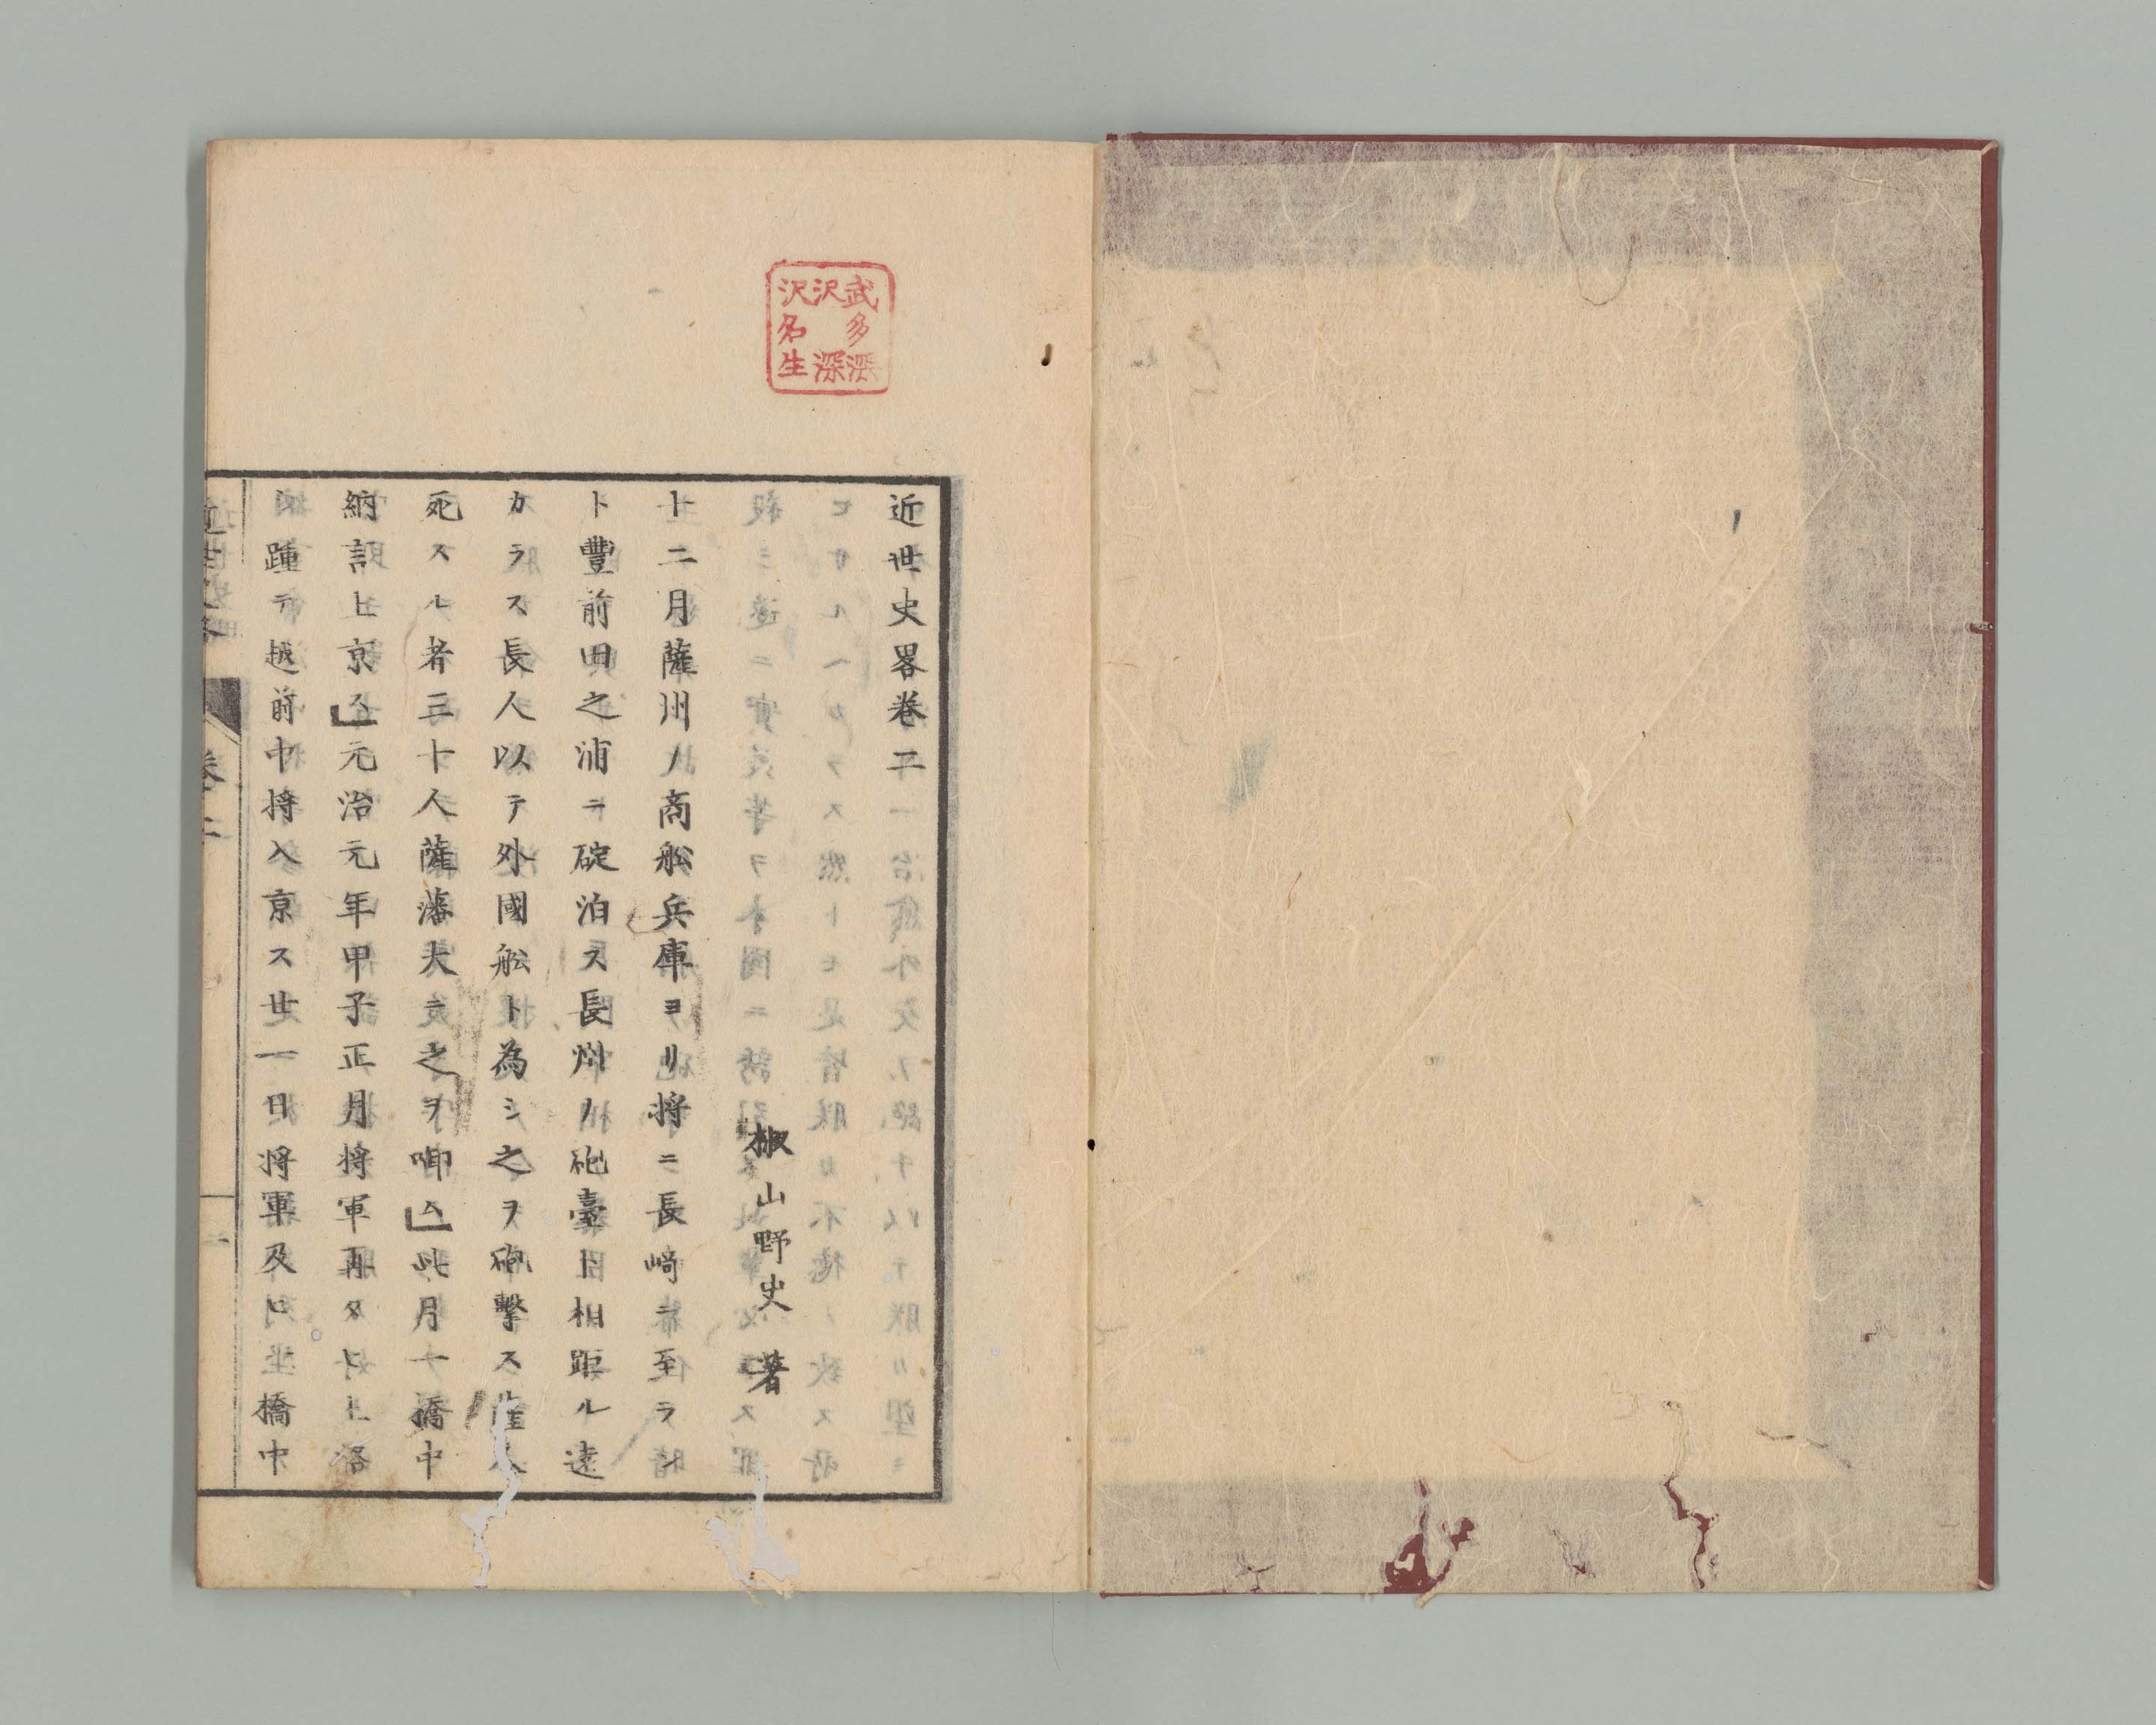 武多深
沢深
沢名生
近世史畧卷二
椒山野史著
十二月薩州ノ商舩兵庫ヨリ將ニ長﨑ニ至ラン
ト豐前田之浦ニ碇泊ス長州ノ砲臺ト相距ル遠
カラス長人以テ外國舩ト為シ之ヲ砲擊ス薩人
死スル者三十人薩藩大ニ之ヲ啣ム此月一橋中
納言上京ス元治元年甲子正月將軍再タヒ上洛
踵テ越前中將入京ス廿一日將軍及ヒ一橋中
卷二